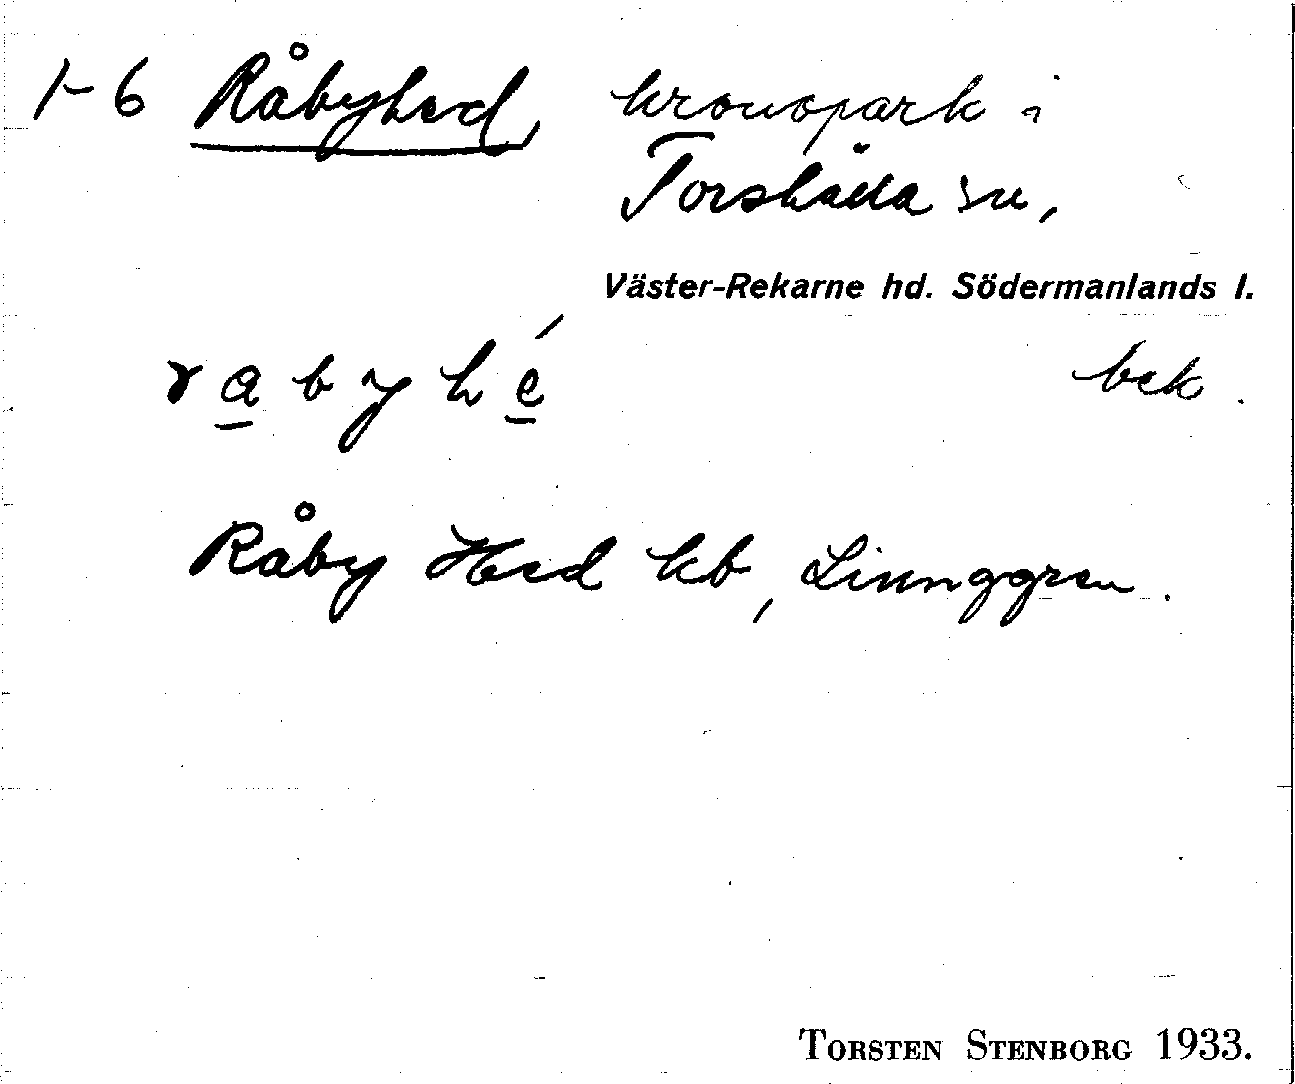 1-6 Råbyhed, kronopark i
Torshälla sn,
Väster-Rekarne hd. Södermanlands l.
r a b y h é bek.
Råby Hed kb, Linnggren.
TORSTEN STENBORG 1933.